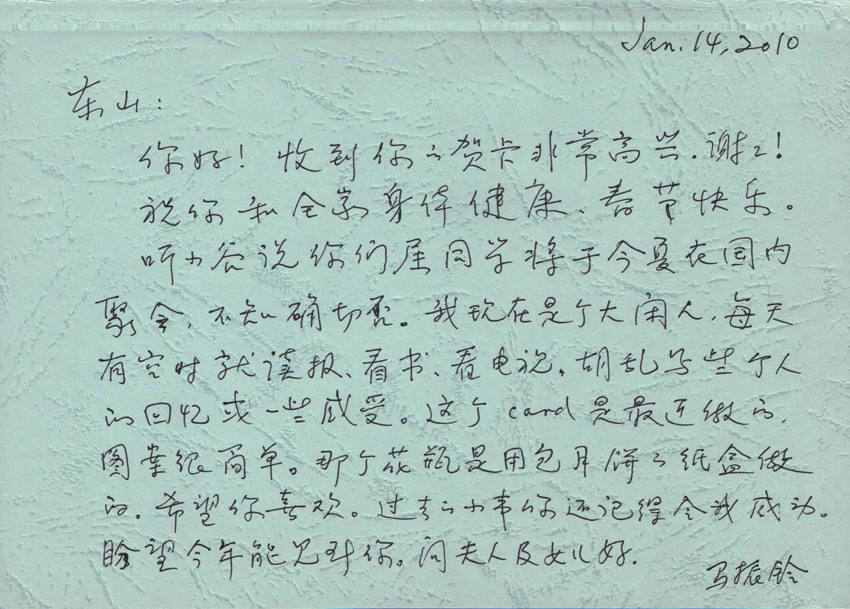 Jan. 14, 2010
东山：
你好！收到你的贺卡非常高兴．谢谢！
祝你和全家身体健康、春节快乐。
听小谷说你们届同学将于今夏在国内
聚会，不知确切否。我现在是个大闲人，每天
有空时就读报、看书、看电视，胡乱写些个人
的回忆或一些感受。这个 card 是最近做的，
图案很简单。那个花瓶是用包月饼的纸盒做
的．希望你喜欢。过去的小事你还记得令我感动。
盼望今年能见到你。问夫人及女儿好．
马振铃